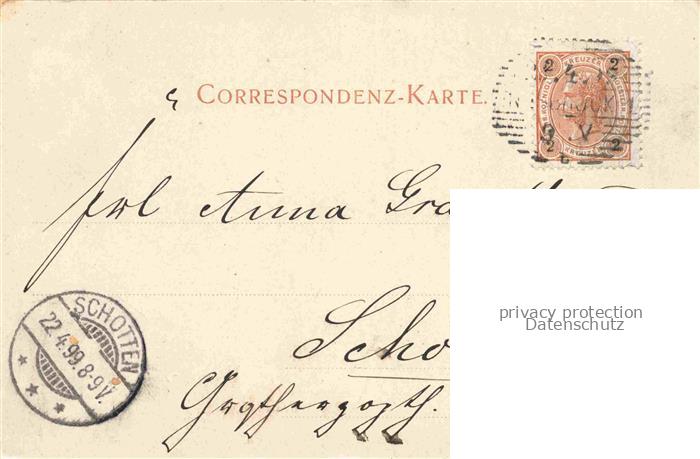 CORRESPONDENZ-KARTE.
2 KREUZER 2
2 KREUZER 2
Frl Anna Gra
privacy protection
Datenschutz
SCHOTTEN
22.4.99.8-9V.
Scho